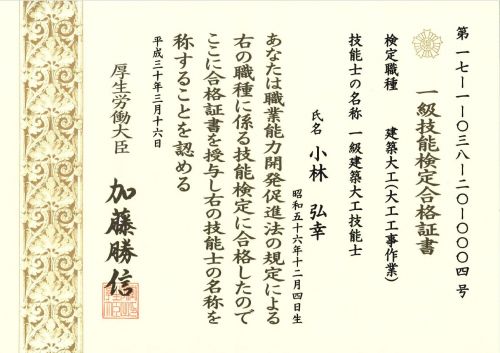 第一七ー一ー〇三八ー二〇ー〇〇〇四号
一級技能検定合格証書
検定職種　建築大工(大工工事作業)
技能士の名称　一級建築大工技能士
氏名　小林　弘幸
昭和五十六年十二月四日生
あなたは職業能力開発促進法の規定による
右の職種に係る技能検定に合格したので
ここに合格証書を授与し右の技能士の名称を
称することを認める
平成三十年三月十六日
厚生労働大臣　加藤勝信